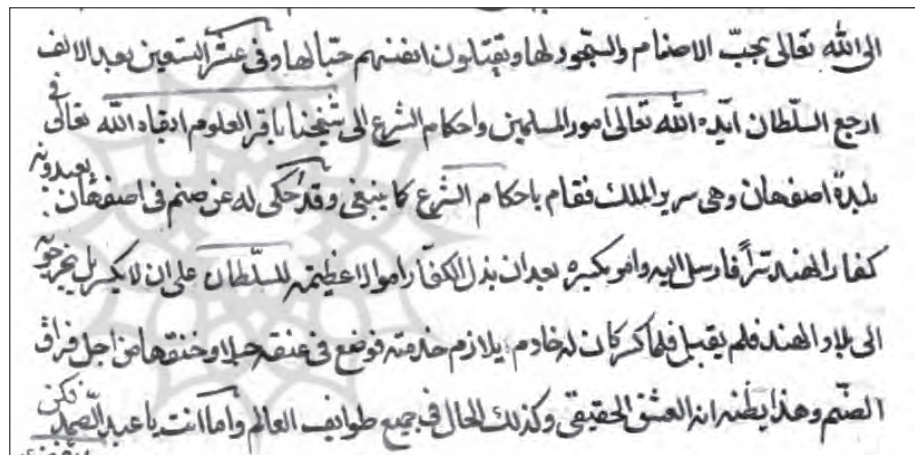 الى الله تعالى بحبّ الاصنام والسّجود لها ويقتلون انفسهم حبّا لها وفى عشر التسعين بعد الالف
ارجع السّلطان ايّده الله تعالى امور المسلمين واحكام الشّرع الى شيخنا باقر العلوم ابقاه الله تعالى فى
بلدة اصفهان وهى سرير الملك فقام باحكام الشّرع كما ينبغى وقد حكى له عن صنم فى اصفهان يعبدونه
كفار الهند سرّاً فارسل اليه وامر بكسره بعد ان بذل الكفّار اموالا عظيمة للسّلطان على ان لا يكسر بل يخرجونه
الى بلاد الهند فلم يقبل فلما كسر كان له خادم يلازم خدمته فوضع فى عنقه حبلا وخنقها من اجل فراق
الصّنم وهذا يظنه انه العشق الحقيقى وكذلك الحال فى جميع طوايف العالم واما انت يا عبد الصّمد فكن